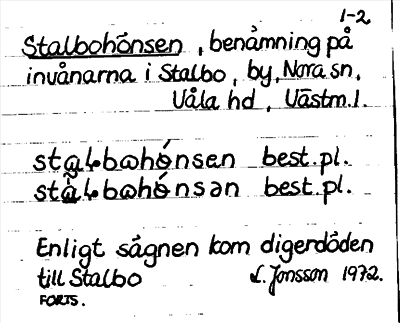 1-2
Stalbohönsen, benämning på
invånarna i Stalbo, by, Nora sn,
Våla hd, Västm.l.
stɑ̀ɫbωhǿnsen best.pl.
stɑ̀ɫbωhǿnsən best.pl.
Enligt sägnen kom digerdöden
till Stalbo L. Jonsson 1972.
FORTS.